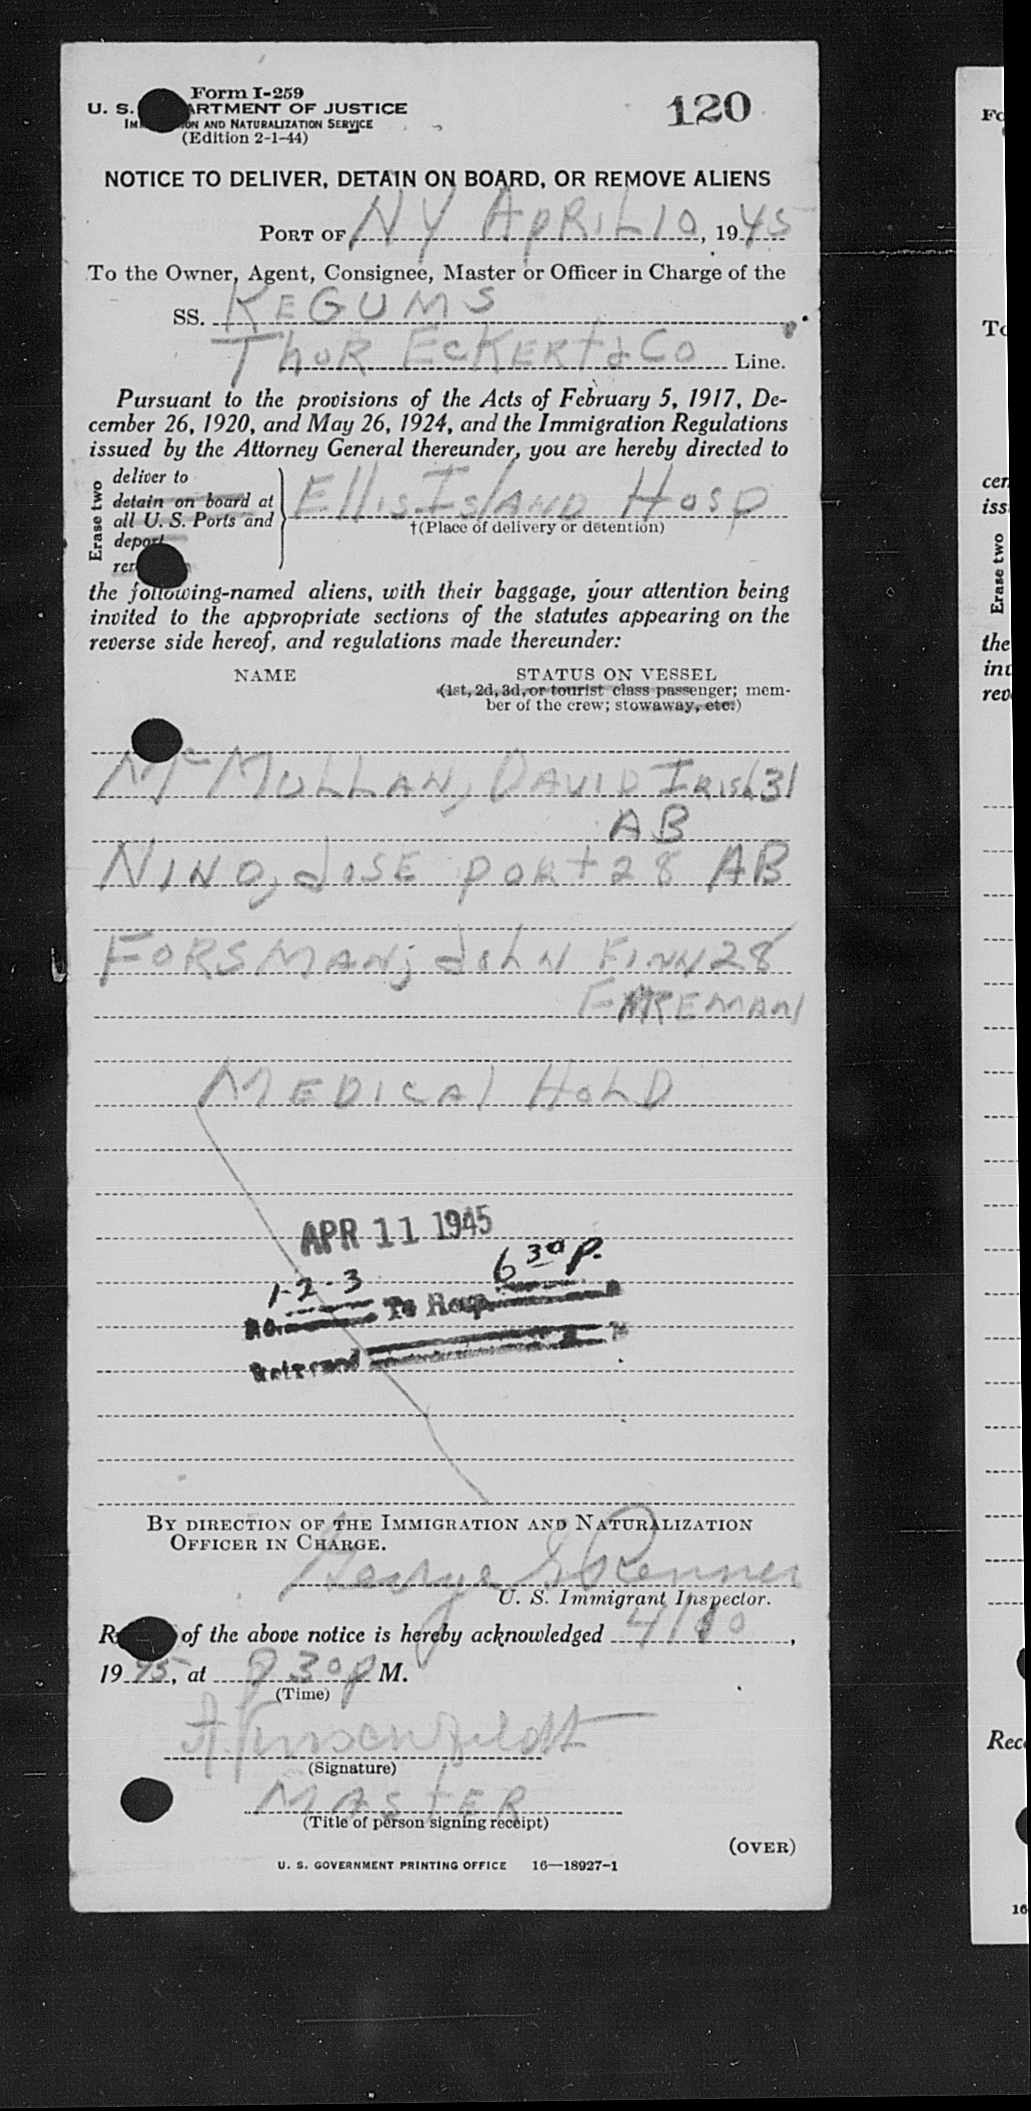 Form I-259
120
U. S. ARTMENT OF JUSTICE
IM ON AND NATURALIZATION SERVICE
(Edition 2-1-44)
NOTICE TO DELIVER, DETAIN ON BOARD, OR REMOVE ALIENS
PORT OF NY APRIL 10, 1945
To the Owner, Agent, Consignee, Master or Officer in Charge of the
SS. KEGUMS
Thor ECKERT & Co Line.
Pursuant to the provisions of the Acts of February 5, 1917, De-
cember 26, 1920, and May 26, 1924, and the Immigration Regulations
issued by the Attorney General thereunder, you are hereby directed to
Erase two
deliver to
detain on board at
all U. S. Ports and
deport
Ellis Island Hosp
†(Place of delivery or detention)
the following-named aliens, with their baggage, your attention being
invited to the appropriate sections of the statutes appearing on the
reverse side hereof, and regulations made thereunder:
NAME STATUS ON VESSEL
(1st, 2d, 3d, or tourist class passenger; mem-
ber of the crew; stowaway, etc.)
McMULLAN, DAVID IRISH 31
AB
NINO, JOSE PORT 28 AB
FORSMAN, JOHN FINN 28
FIREMAN
MEDICAL HOLD
APR 11 1945
1-2-3 6 30 p.
To Hosp
BY DIRECTION OF THE IMMIGRATION AND NATURALIZATION
OFFICER IN CHARGE.
George Renner
U. S. Immigrant Inspector.
R of the above notice is hereby acknowledged 4/10,
1945, at 930p M.
(Time)
(Signature)
MASTER
(Title of person signing receipt)
(OVER)
U. S. GOVERNMENT PRINTING OFFICE 16—18927-1
Erase two
the
Rec
16